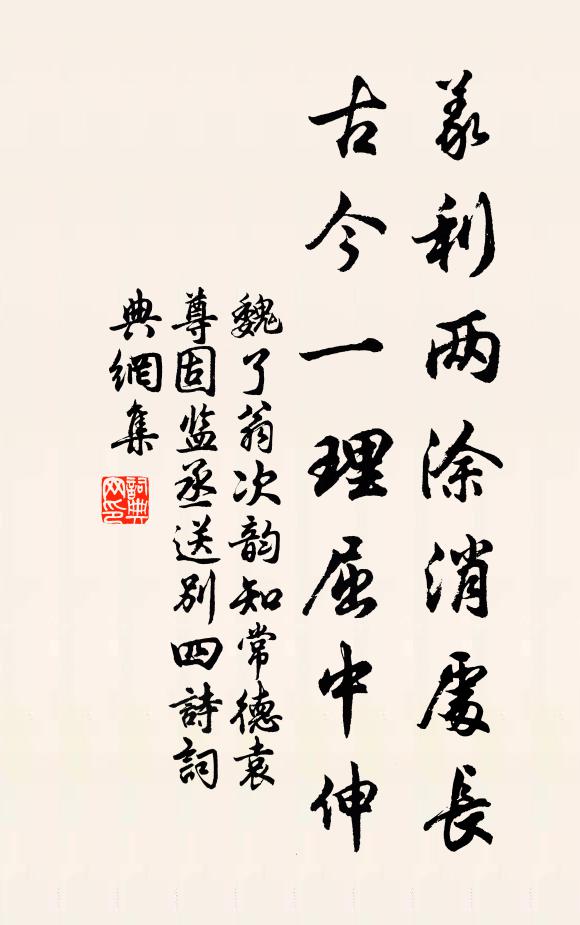 义利两涂消处長
古今一理屈中伸
魏了翁次韵知常德袁
尊固监丞送别四詩詞
典網集
詞典网印